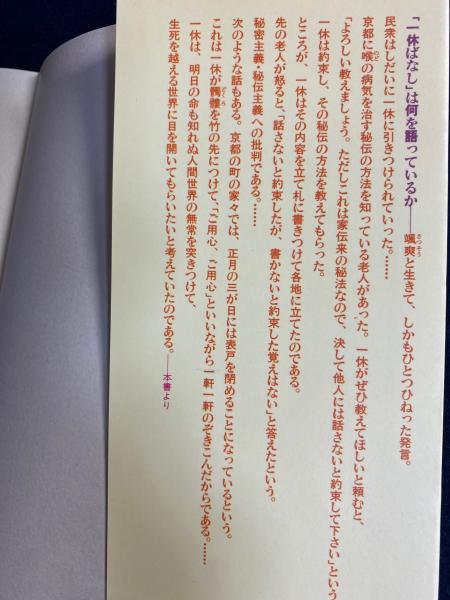 「一休ばなし」は何を語っているか——颯爽と生きて、しかもひとつひねった発言。
民衆はしだいに一休に引きつけられていった。……
京都に喉の病気を治す秘伝の方法を知っている老人があった。一休がぜひ教えてほしいと頼むと、
「よろしい教えましょう。ただしこれは家伝来の秘法なので、決して他人には話さないと約束して下さい」という
一休は約束し、その秘伝の方法を教えてもらった。
ところが、一休はその内容を立て札に書きつけて各地に立てたのである。
先の老人が怒ると、「話さないと約束したが、書かないと約束した覚えはない」と答えたという。
秘密主義・秘伝主義への批判である。……
次のような話もある。京都の町の家々では、正月の三が日には表戸を閉めることになっているという。
これは一休が髑髏を竹の先につけて、「ご用心、ご用心」といいながら一軒一軒のぞきこんだからである。……
一休は、明日の命も知れぬ人間世界の無常を突きつけて、
生死を越える世界に目を開いてもらいたいと考えていたのである。——本書より